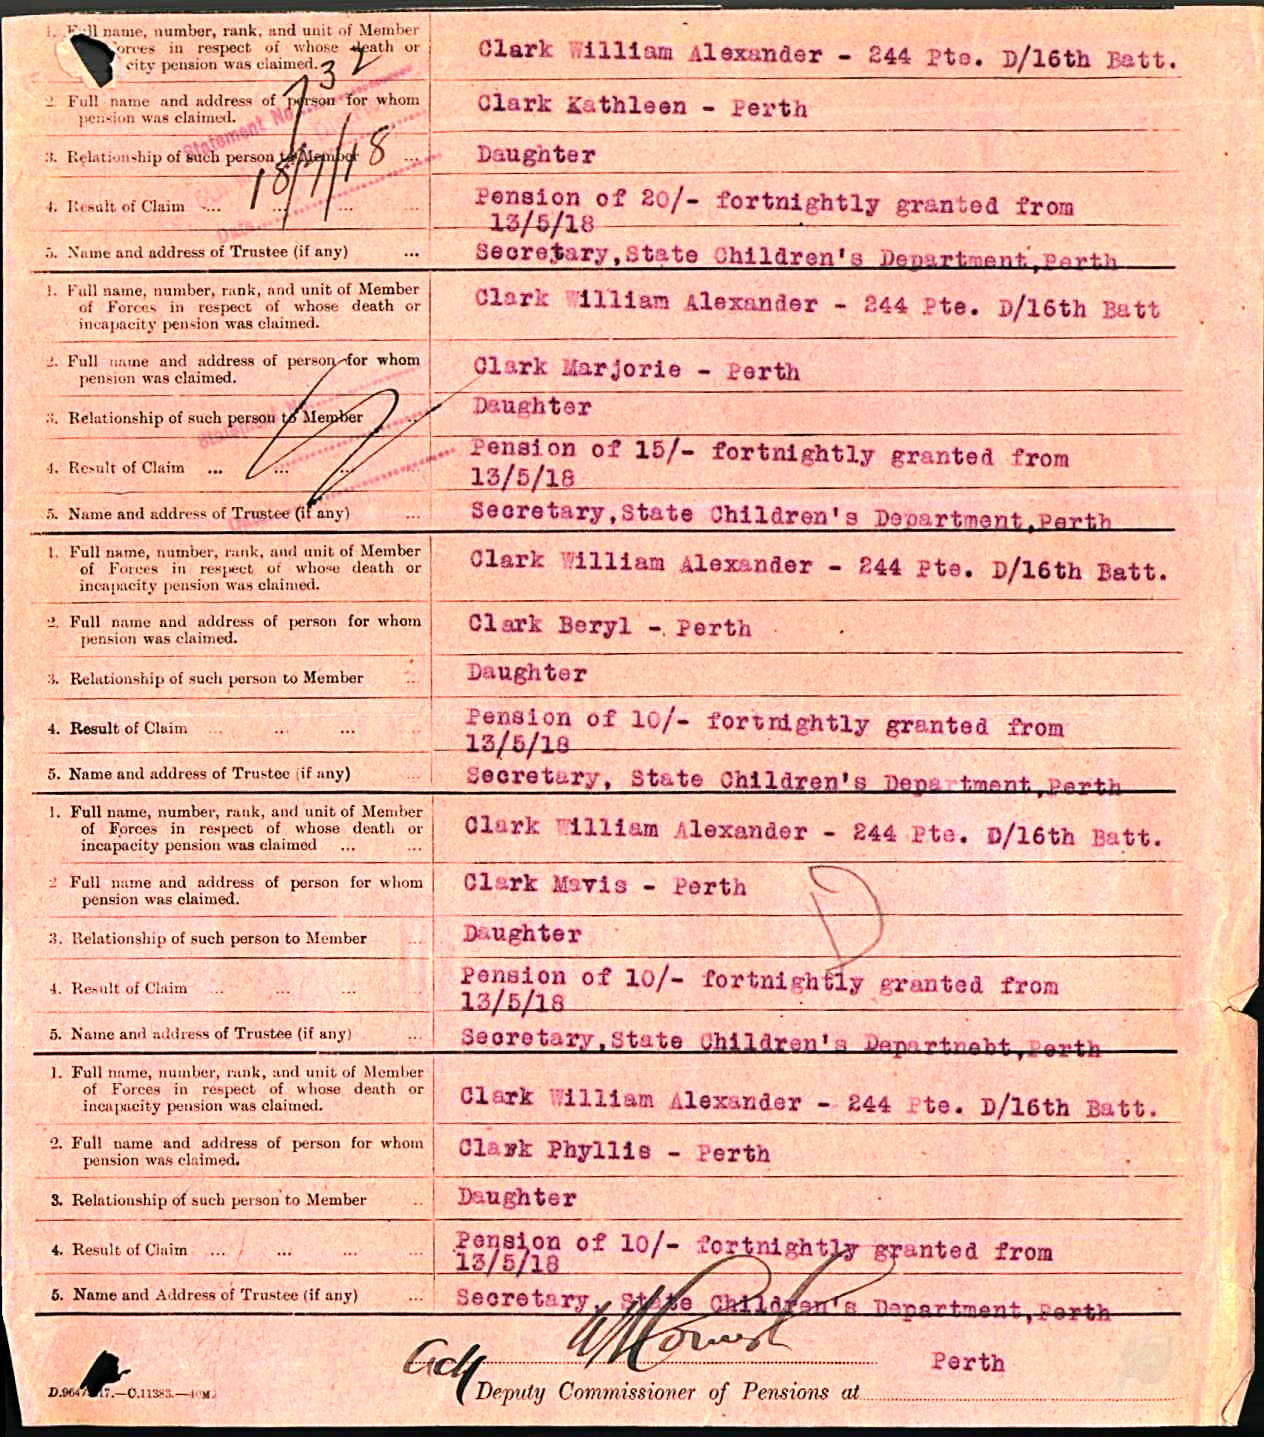 1. Full name, number, rank, and unit of Member
orces in respect of whose death or
city pension was claimed.
Clark William Alexander - 244 Pte. D/16th Batt.
732
2. Full name and address of person for whom
pension was claimed.
Clark Kathleen - Perth
Statement No.
3. Relationship of such person to Member ...
Daughter
18/7/18
4. Result of Claim ... ... ... ...
Pension of 20/- fortnightly granted from
13/5/18
Date
5. Name and address of Trustee (if any) ...
Secretary,State Children's Department,Perth
1. Full name, number, rank, and unit of Member
of Forces in respect of whose death or
incapacity pension was claimed.
Clark William Alexander - 244 Pte. D/16th Batt
2. Full name and address of person for whom
pension was claimed.
Clark Marjorie - Perth
3. Relationship of such person to Member ...
Daughter
Statement No.
4. Result of Claim ... ... ...
Pension of 15/- fortnightly granted from
13/5/18
5. Name and address of Trustee (if any) ...
Secretary,State Children's Department,Perth
1. Full name, number, rank, and unit of Member
of Forces in respect of whose death or
incapacity pension was claimed.
Clark William Alexander - 244 Pte. D/16th Batt.
2. Full name and address of person for whom
pension was claimed.
Clark Beryl - Perth
3. Relationship of such person to Member ...
Daughter
4. Result of Claim ... ... ...
Pension of 10/- fortnightly granted from
13/5/18
5. Name and address of Trustee (if any) ...
Secretary, State Children's Department,Perth
1. Full name, number, rank, and unit of Member
of Forces in respect of whose death or
incapacity pension was claimed ... ...
Clark William Alexander - 244 Pte. D/16th Batt.
2 Full name and address of person for whom
pension was claimed.
Clark Mavis - Perth
D
3. Relationship of such person to Member ...
Daughter
4. Result of Claim ... ... ... ...
Pension of 10/- fortnightly granted from
13/5/18
5. Name and address of Trustee (if any) ...
Secretary,State Children's Departnebt,Perth
1. Full name, number, rank, and unit of Member
of Forces in respect of whose death or
incapacity pension was claimed.
Clark William Alexander - 244 Pte. D/16th Batt.
2. Full name and address of person for whom
pension was claimed.
Clark Phyllis - Perth
3. Relationship of such person to Member ..
Daughter
4. Result of Claim ... ... ... ...
Pension of 10/- fortnightly granted from
13/5/18
5. Name and Address of Trustee (if any) ...
Secretary, State Children's Department,Perth
Perth
Deputy Commissioner of Pensions at
17.—C.11383.—